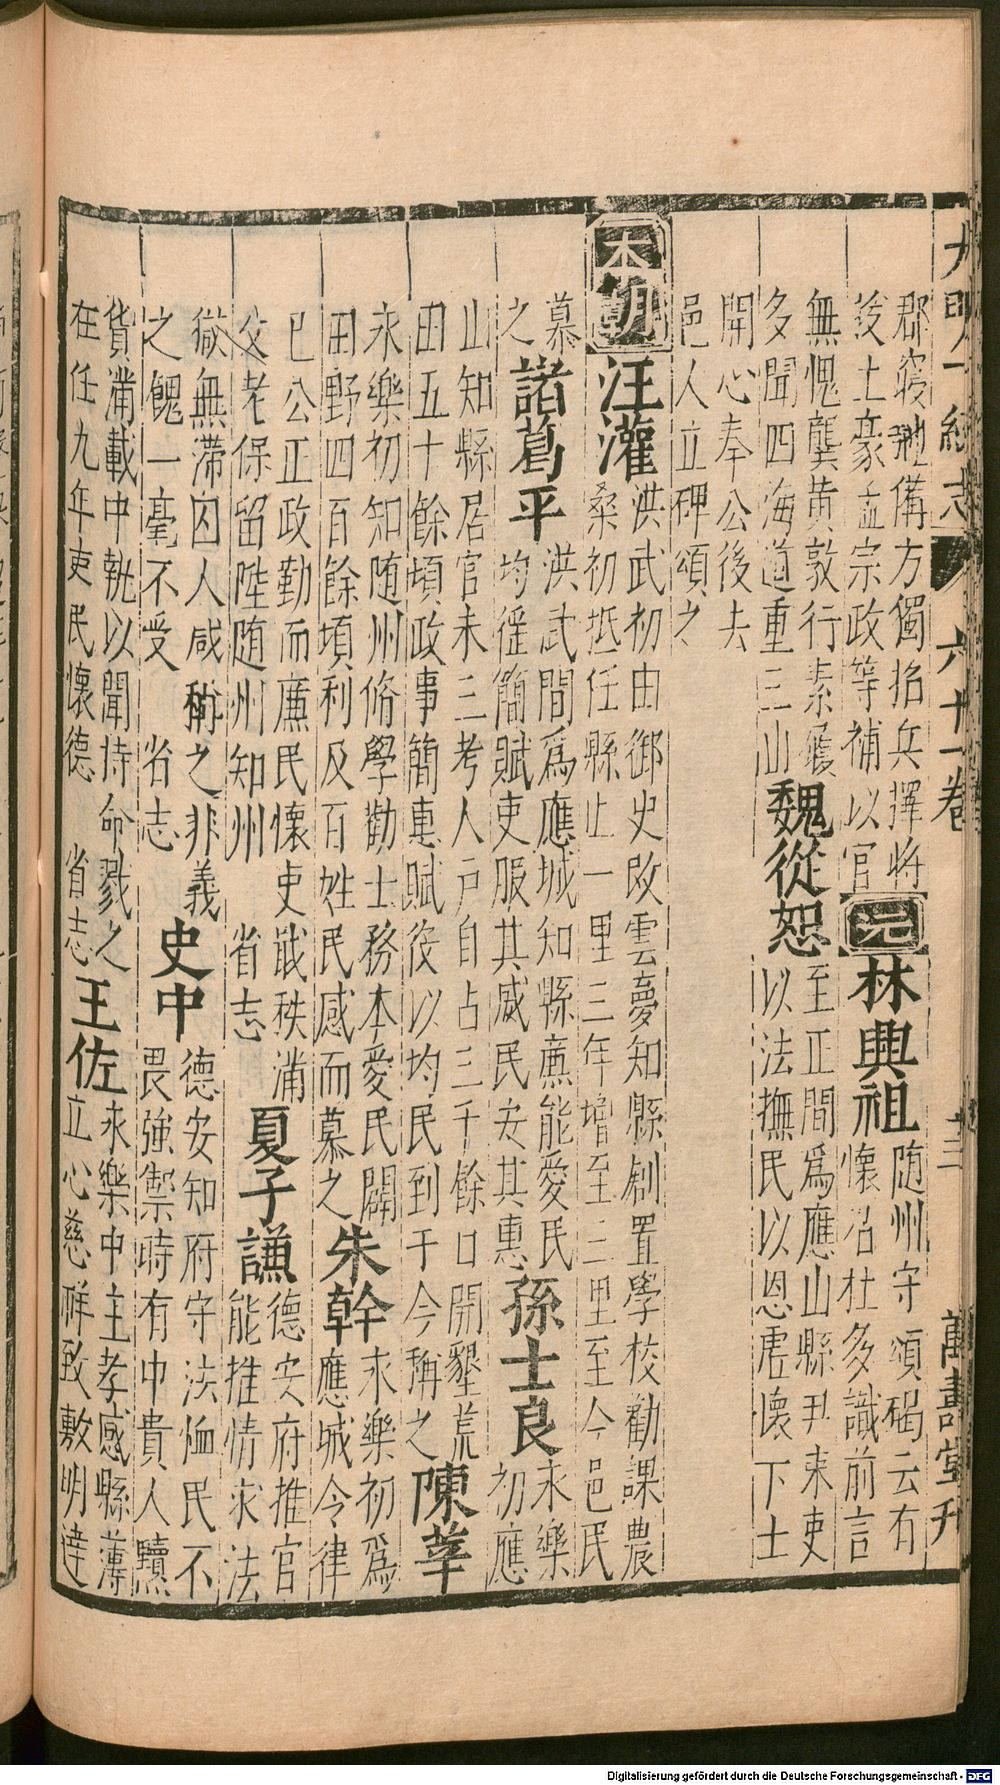 大明一統志 六十一卷 十二 萬壽堂刊
郡寇𨚫備方獨招兵擇將
後土豪孟宗政等補以官
元
林興祖
随州守頌碣云有
懷召杜多識前言
無愧龔黄敦行素履
多聞四海道重三山
魏從恕
至正間爲應山縣尹来吏
以法撫民以恩虐懷下士
開心奉公後去
邑人立碑頌之
本朝
汪灌
洪武初由御史改雲夢知縣創置學校勸課農
桑初抵任縣止一里三年增至三里至今邑民
慕
之
諸葛平
洪武間爲應城知縣廉能愛民
均徭簡賦吏服其威民安其惠
孫士良
永樂
初應
山知縣居官未三考人户自占三千餘口開墾荒
田五十餘頃政事簡惠賦役以均民到于今稱之
陳莘
永樂初知随州脩學勸士務本愛民闢
田野四百餘頃利及百姓民感而慕之
朱幹
永樂初爲
應城令律
已公正政勤而廉民懷吏戢秩滿
父老保留陞随州知州 省志
夏子謙
德安府推官
能推情求法
獄無滯囚人咸稱之非義
之餽一毫不受 省志
史中
德安知府守法恤民不
畏強禦時有中貴人黷
貨滿載中執以聞特命戮之
在任九年吏民懷德 省志
王佐
永樂中主孝感縣薄
立心慈祥致敷明達
Digitalisierung gefördert durch die Deutsche Forschungsgemeinschaft - DFG